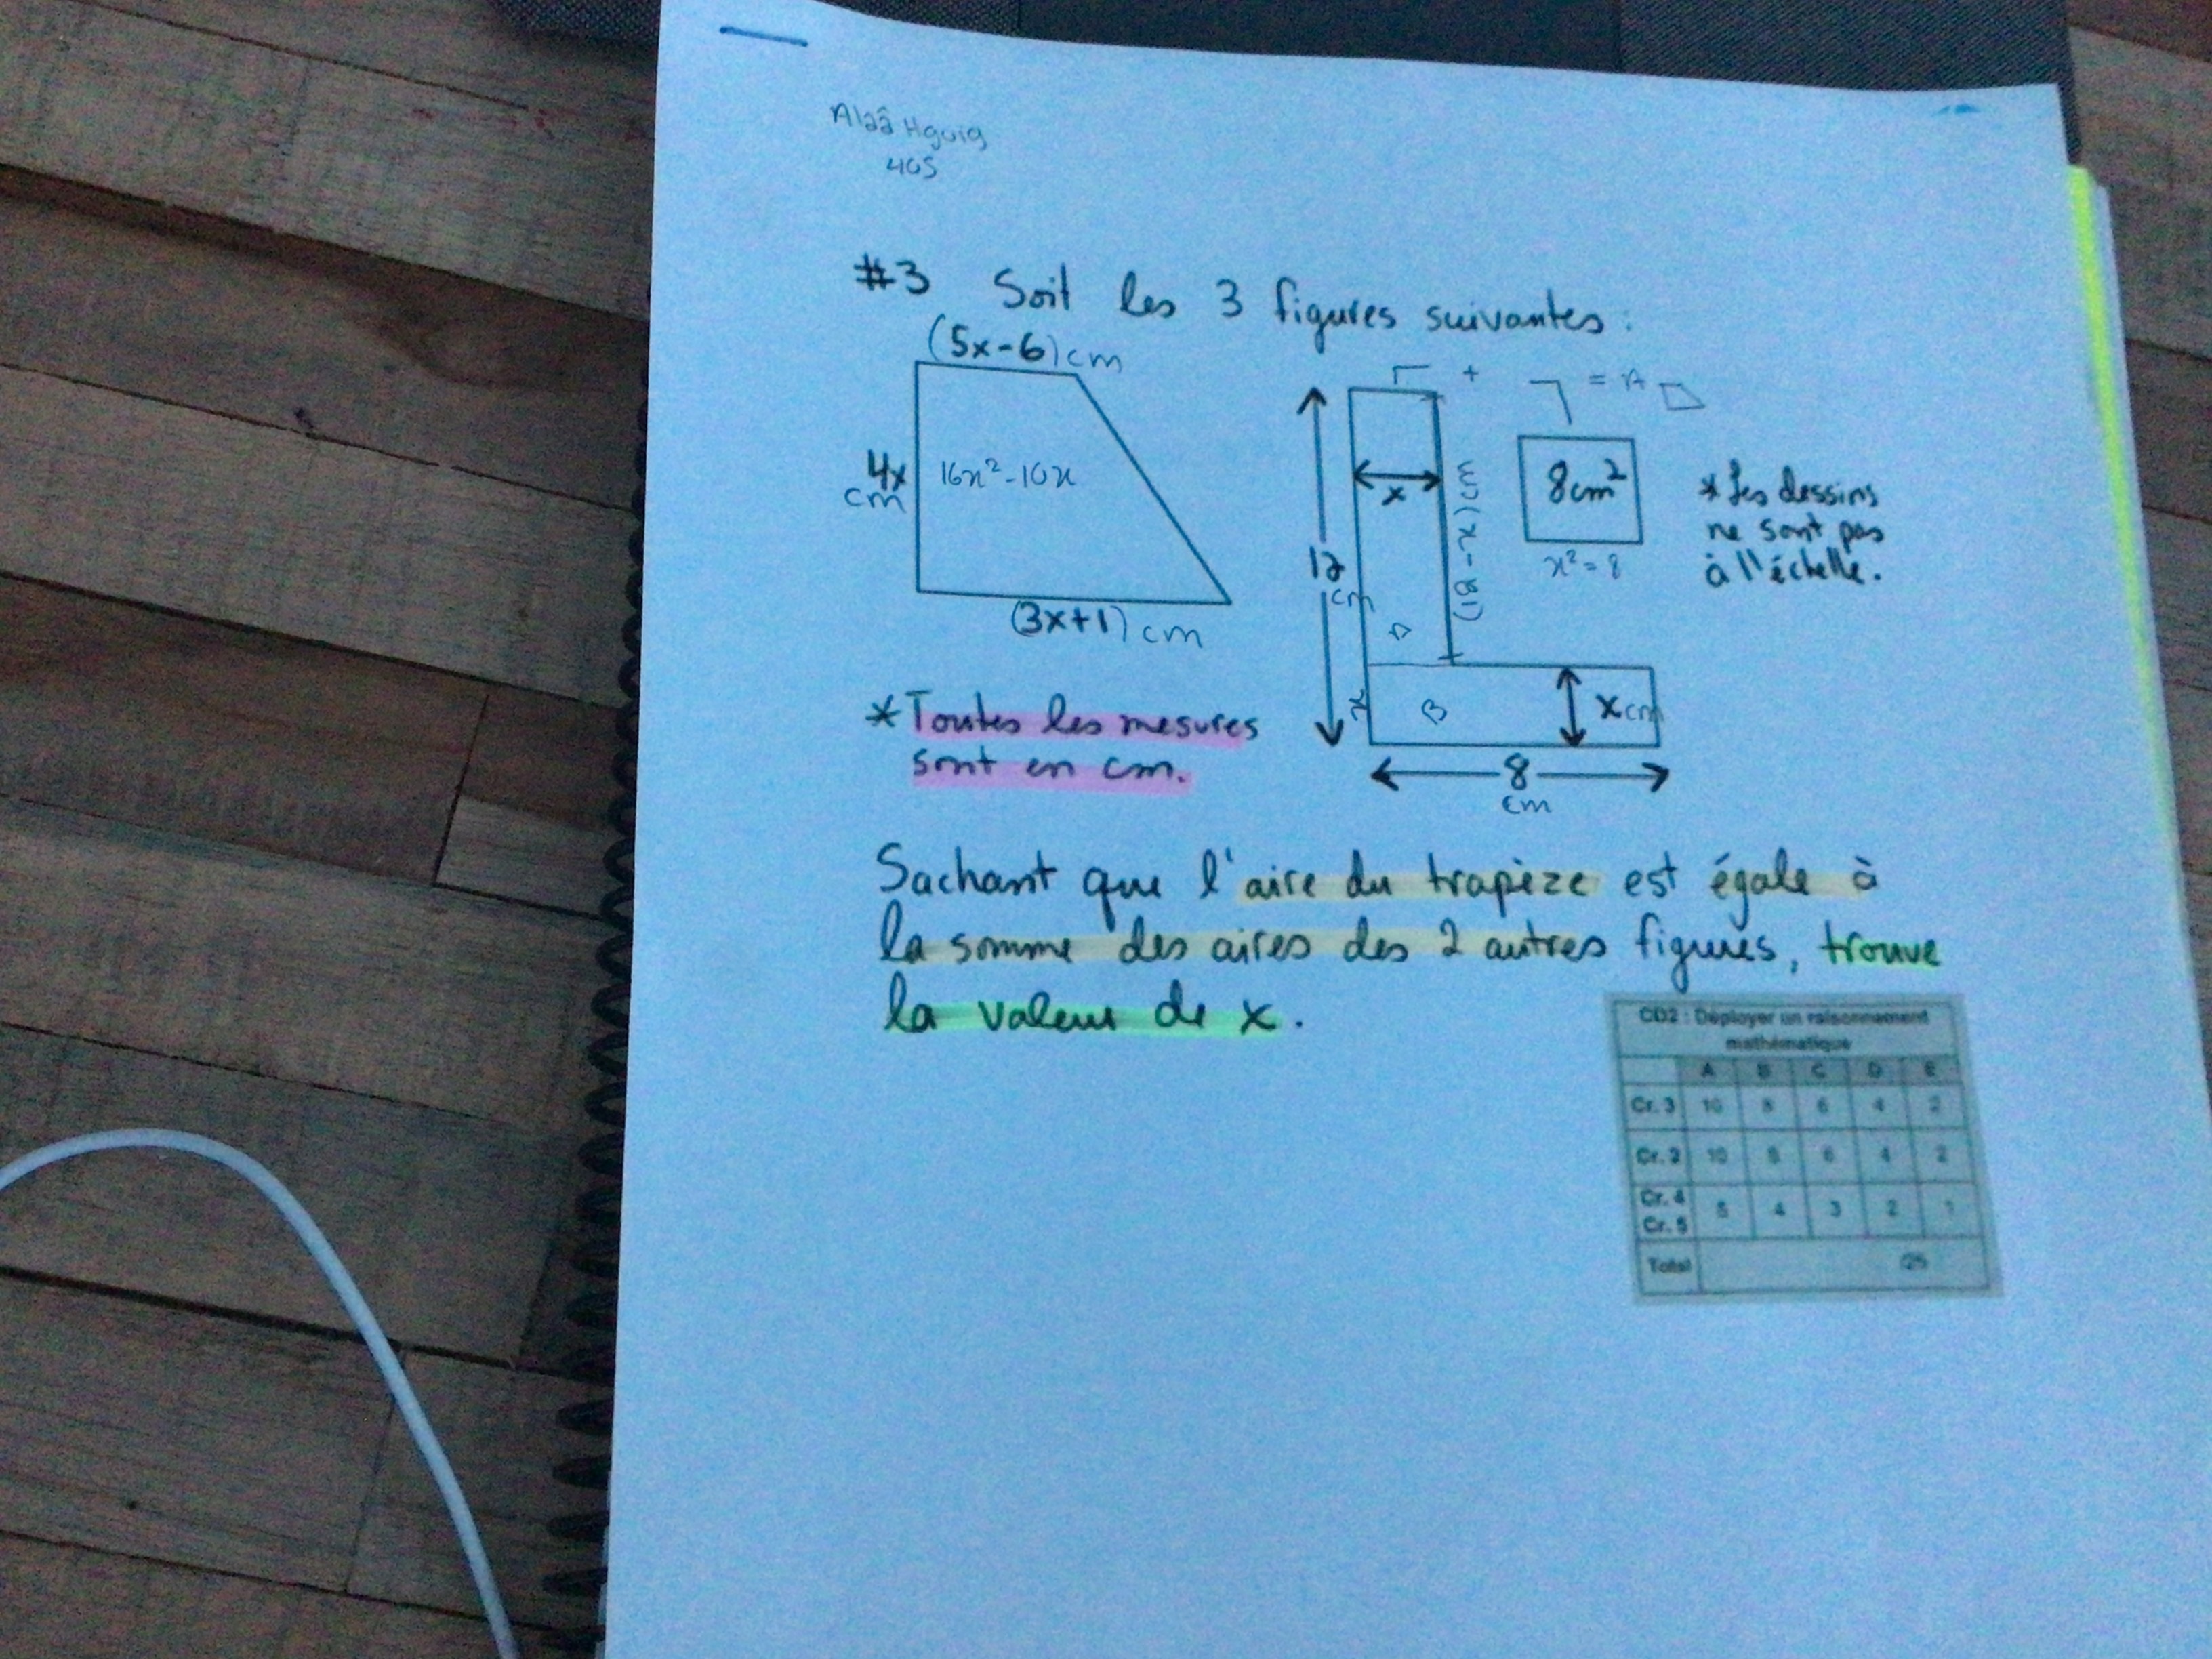 Alaâ Hguig
405
#3 Soit les 3 figures suivantes:
(5x-6) cm
4x
cm
16x²-10x
(3x+1) cm
+ = A
x
12
cm
8cm²
x²=8
* Les dessins
ne sont pas
à l'échelle.
x
B
x cm
8
cm
* Toutes les mesures
sont en cm.
Sachant que l'aire du trapèze est égale à
la somme des aires des 2 autres figures, trouve
la valeur de x.
CD2 : Déployer un raisonnement
mathématique
A B C D E
Cr. 3 10 8 6 4 2
Cr. 2 10 8 6 4 2
Cr. 4
Cr. 5
5 4 3 2 1
Total /25